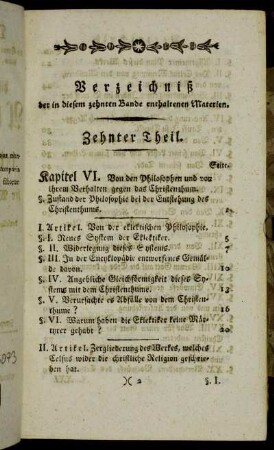 Verzeichniß
der in diesem zehnten Bande enthaltenen Materien.
Zehnter Theil.
Seite.
Kapitel VI. Von den Philosophen und von
ihrem Verhalten gegen das Christenthum.
§. Zustand der Philosophie bei der Entstehung des
Christenthums.
I. Artikel. Von der eklektischen Philosophie.
§. I. Neues System der Eklektiker. 5
§. II. Widerlegung dieses Systems. 7
§. III. In der Encyklopädie entworfenes Gemäl-
de davon. 10
§. IV. Angebliche Gleichförmigkeit dieses Sy-
stems mit dem Christenthume. 13
§. V. Verursachte es Abfälle von dem Christen-
thume? 16
§. VI. Warum haben die Eklektiker keine Mär-
tyrer gehabt? 20
II. Artikel. Zergliederung des Werkes, welches
Celsus wider die christliche Religion geschrie-
ben hat.
)( 2 §. I.